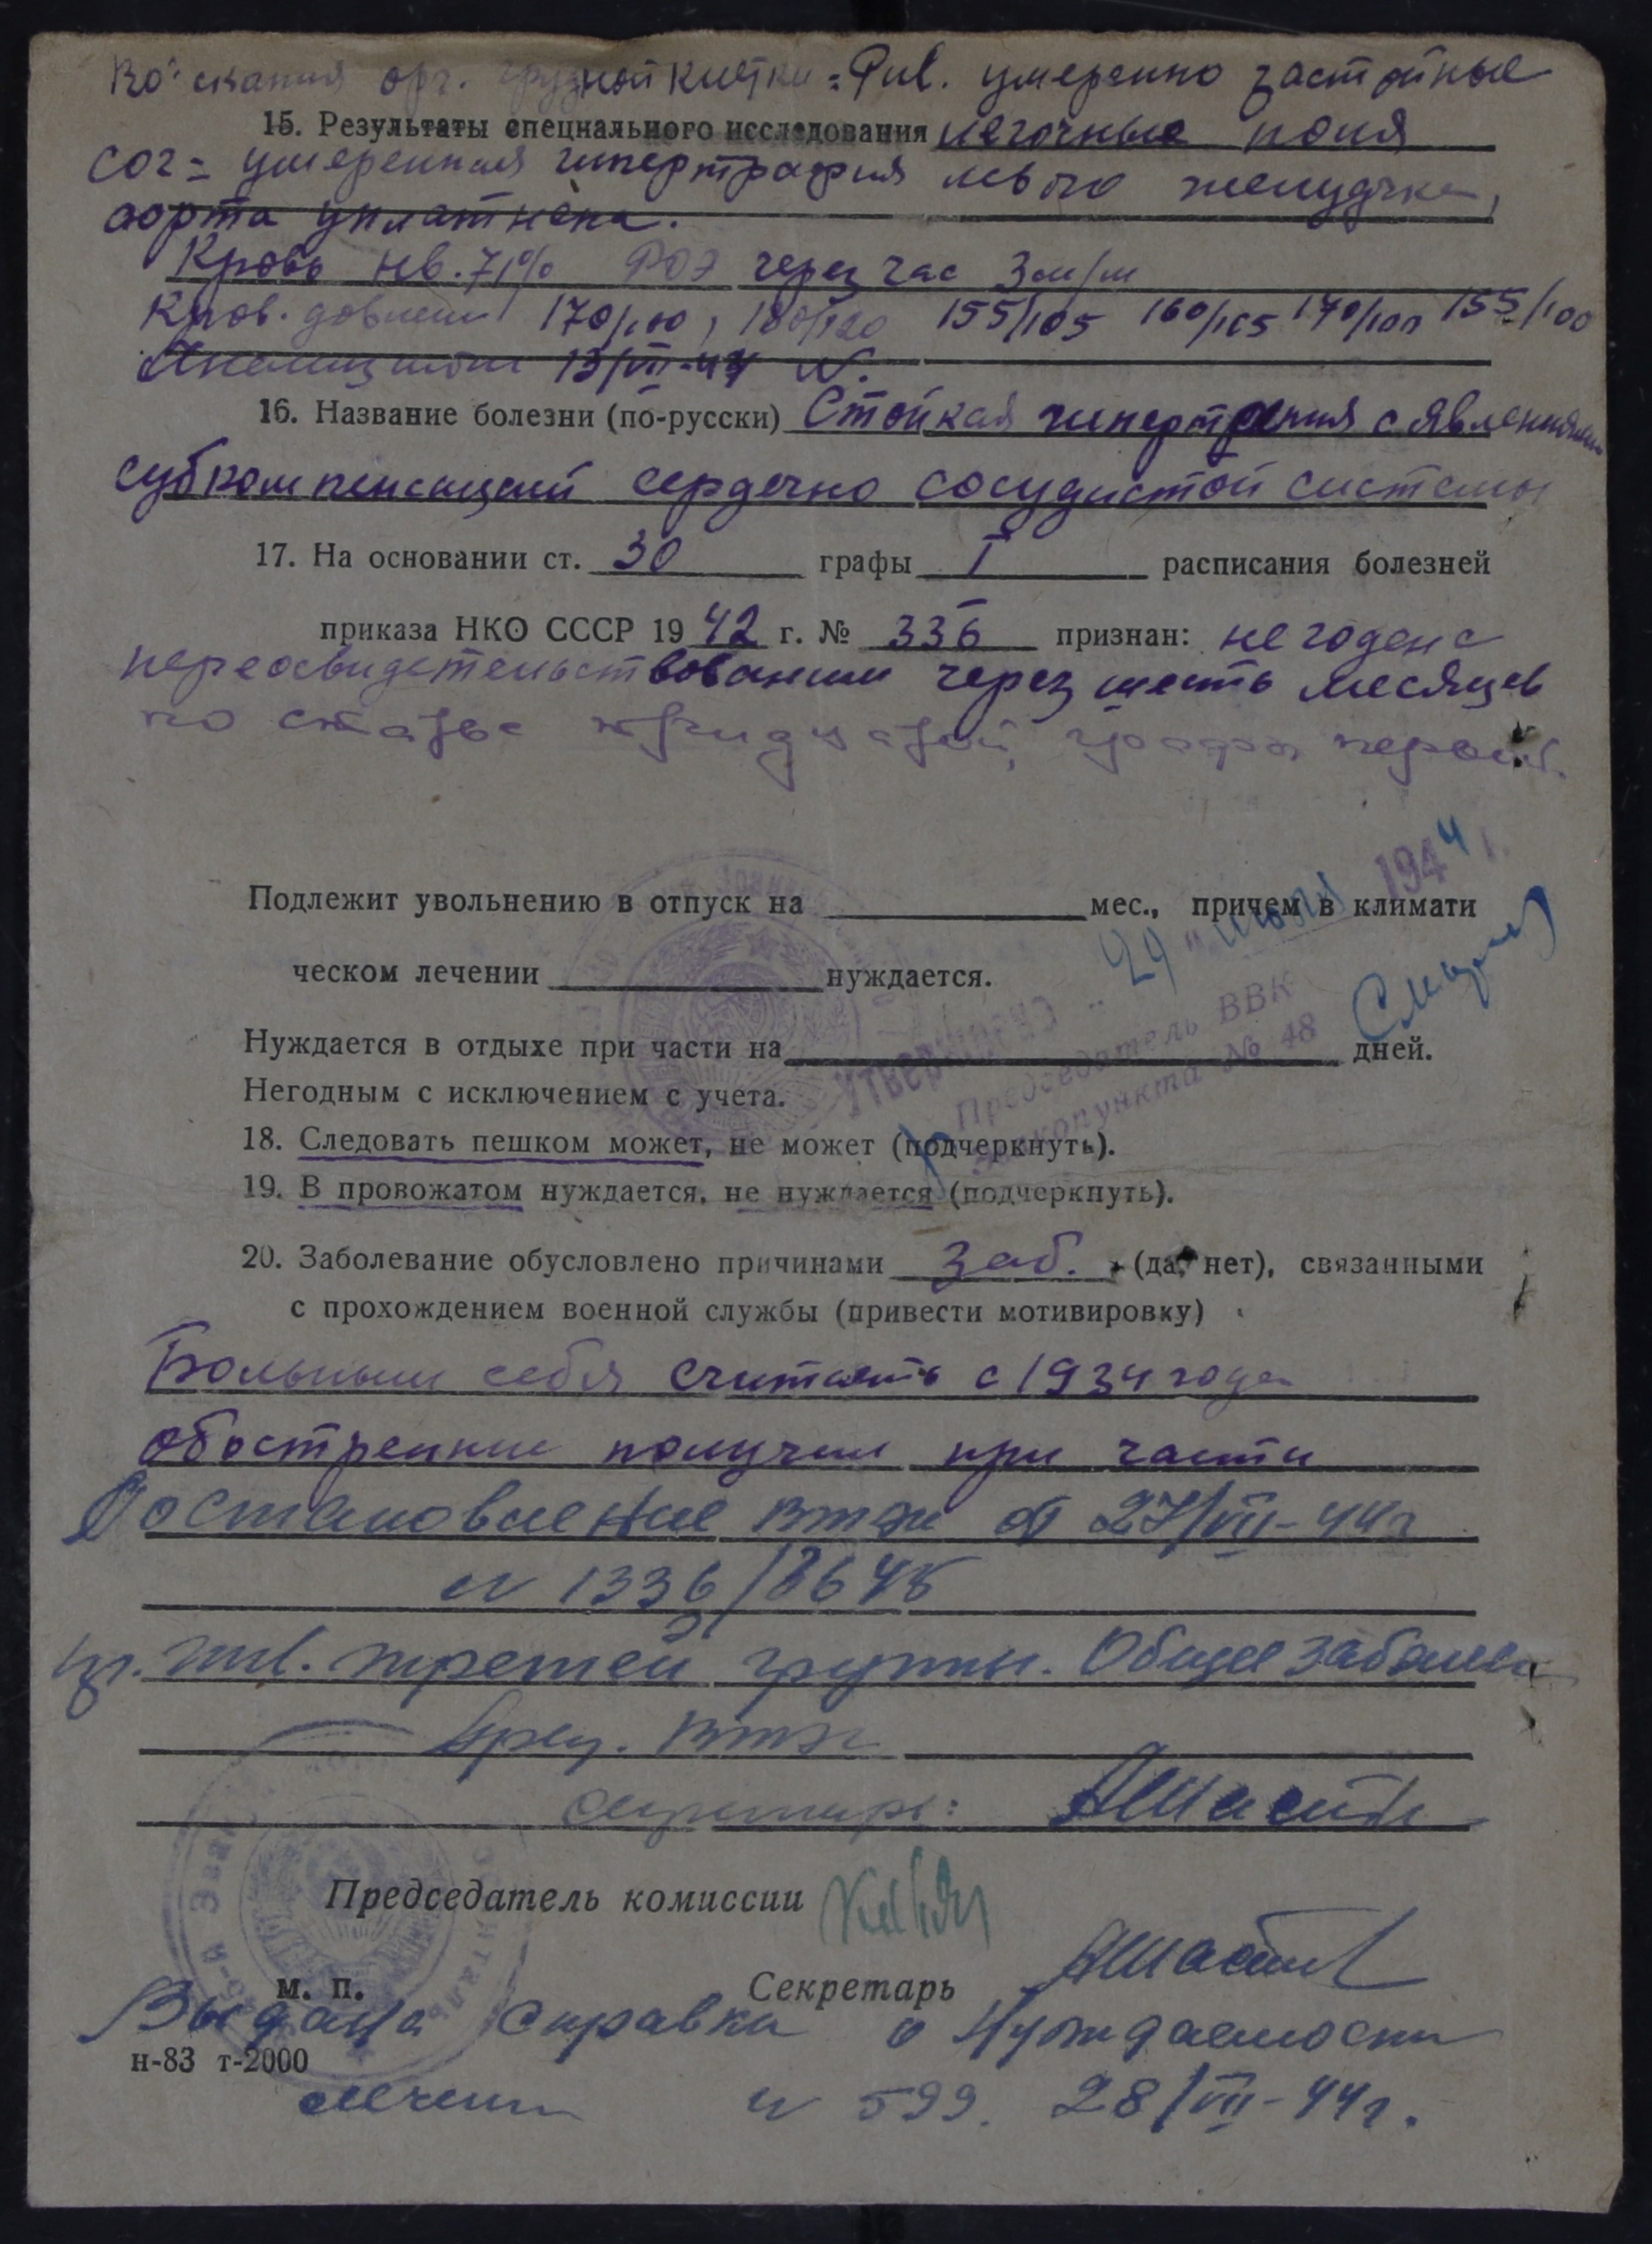 орг. грудной клетки = Pul. умеренно застойные
15. Результаты специального исследования легочные поля
Cor = умеренная гипертрафия левого желудочка,
аорта уплатнена.
Кровь Нв. 71% РОЭ через час 3 м/м
Кров. довлени 170/100, 180/120 155/105 160/105 170/100 155/100
13/VII-44 N.
16. Название болезни (по-русски) Стойкая гипертония с явлениями
субкомпенсацией сердечно сосудистой системы
17. На основании ст. 30 графы I расписания болезней
приказа НКО СССР 1942 г. № 336 признан: не годен с
переосвидетельствованием через шесть месяцев
по статье тридцатой, графы первой.
Подлежит увольнению в отпуск на мес., причем в климати
ческом лечении нуждается.
Нуждается в отдыхе при части на дней.
Утверждено „ 29 " июля 1944 г.
Председатель ВВК
эвакопункта № 48
Негодным с исключением с учета.
18. Следовать пешком может, не может (подчеркнуть).
19. В провожатом нуждается, не нуждается (подчеркнуть).
20. Заболевание обусловлено причинами заб. (да, нет), связанными
с прохождением военной службы (привести мотивировку)
Больным себя считает с 1934 года
обострение получил при части
Постановление втэк от 27/VIII-44г
N 1336/8648
инв. третей группы. Общее заболев
Пред. втэк
секретарь:
Председатель комиссии
М. П.
Секретарь
Выдана справка о Нуждаемости
н-83 т-2000
лечени N 599. 28/VIII-44г.